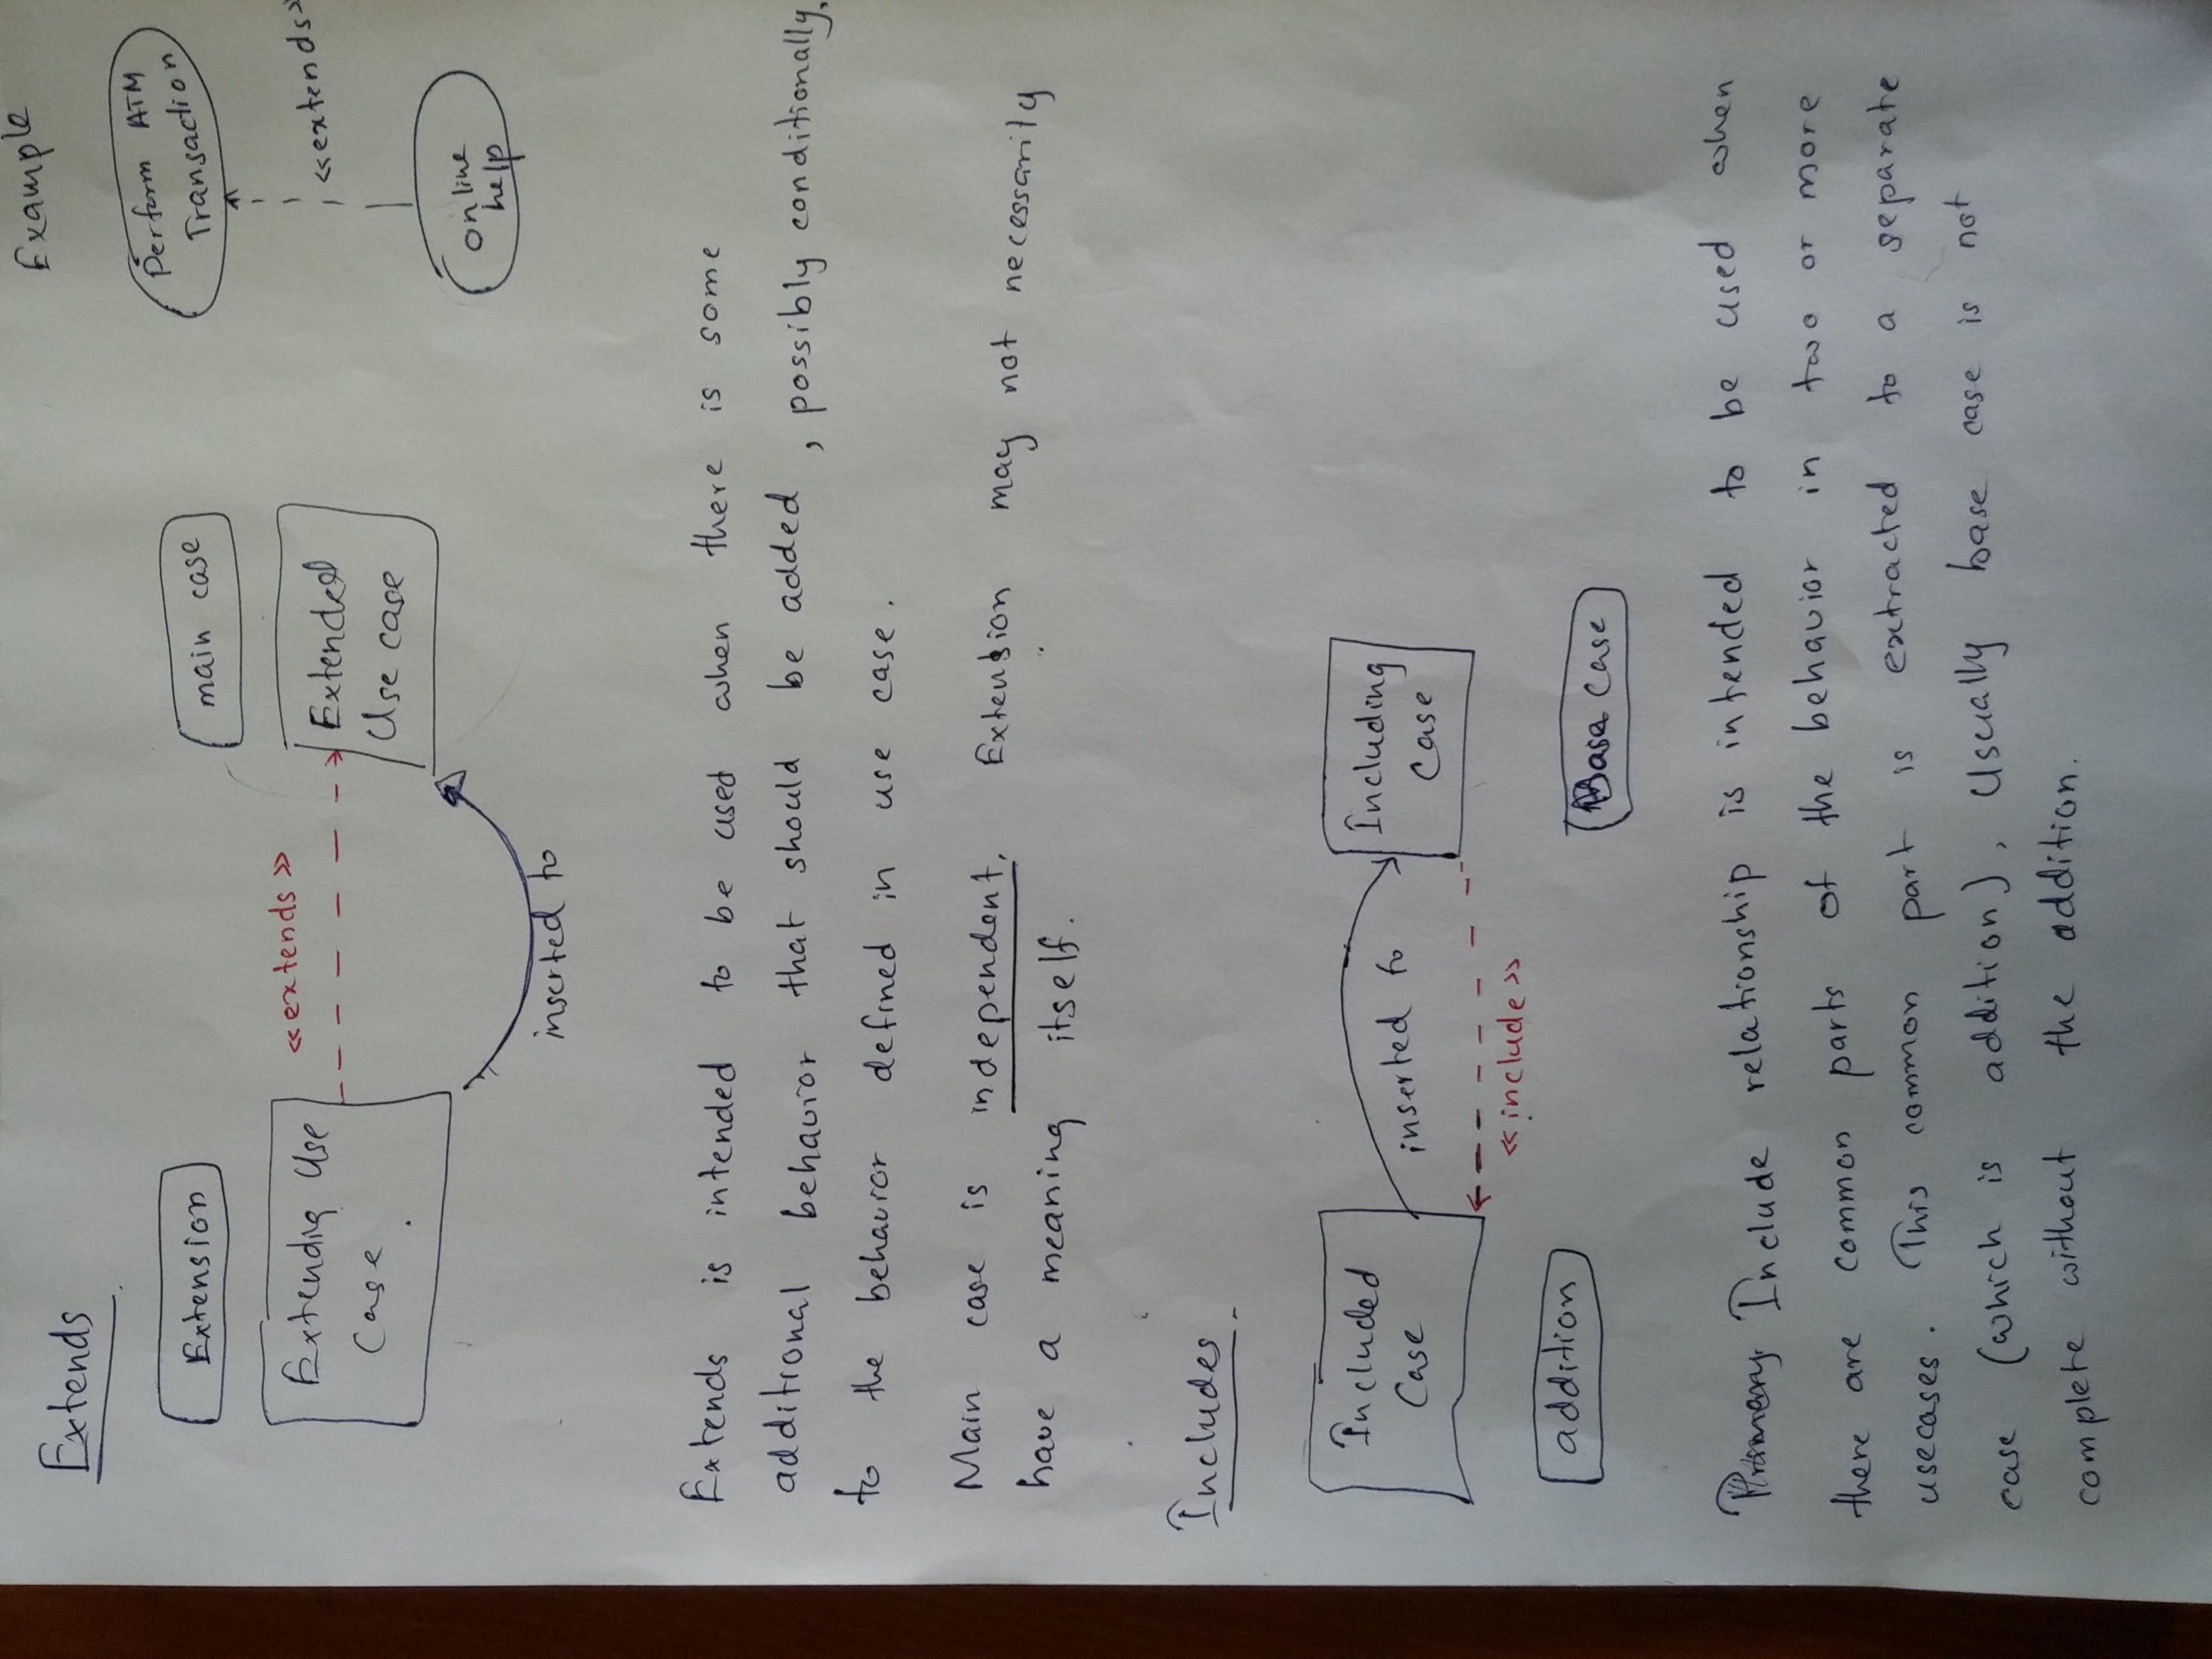 Extends
Example
Extension
main case
Perform ATM
Transaction
«extends»
Extending Use
Case
Extended
Use case
«extends»
online
help
inserted to
Extends is intended to be used when there is some
additional behavior that should be added, possibly conditionally,
to the behavior defined in use case.
Main case is independent. Extension may not necessarily
have a meaning itself.
Includes
Included
Case
inserted to
Including
Case
«include»
addition
Base Case
Include relationship is intended to be used when
there are common parts of the behavior in two or more
usecases. This common part is extracted to a separate
case (which is addition), Usually base case is not
complete without the addition.